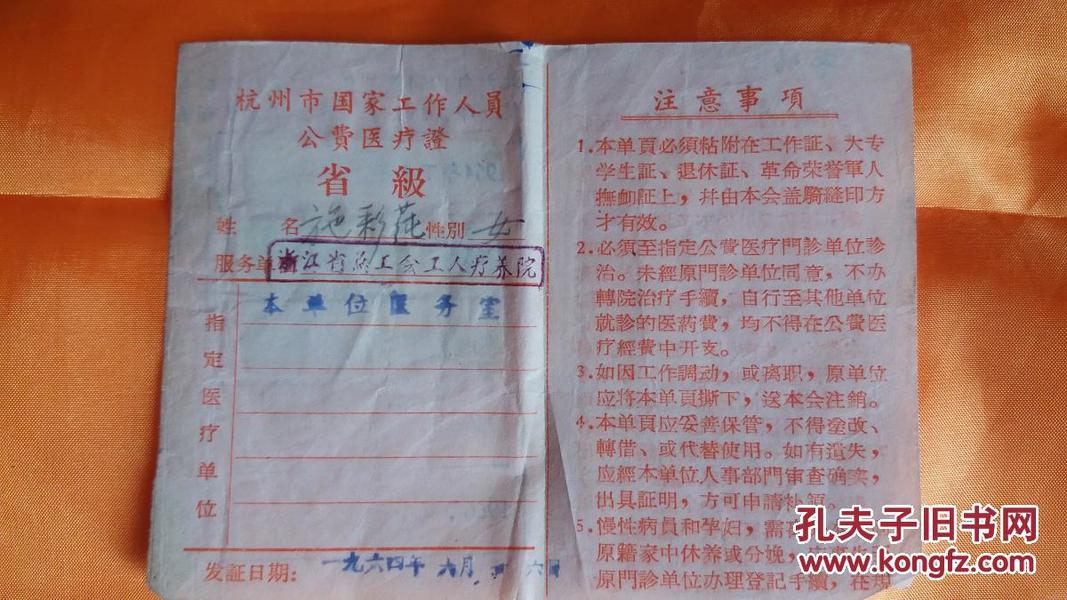 杭州市国家工作人員
公費医疗證
省級
姓名 施彩蓮 性别 女
服务单 浙江省总工会工人疗养院
指定医疗单位
本单位医务室
发証日期：一九六四年 六月 六日
注意事項
1.本单頁必須粘附在工作証、大专
学生証、退休証、革命荣誉軍人
撫卹証上，幷由本会盖騎縫印方
才有效。
2.必須至指定公費医疗門診单位診
治。未經原門診单位同意，不办
轉院治疗手續，自行至其他单位
就診的医葯費，均不得在公費医
疗經費中开支。
3.如因工作調动，或离职，原单位
应将本单頁撕下，送本会注銷。
4.本单頁应妥善保管，不得塗改、
轉借、或代替使用。如有遺失，
应經本单位人事部門审查确实，
出具証明，方可申請补領。
5.慢性病員和孕妇，需
原籍家中休养或分娩，
原門診单位办理登記手續，在規
孔夫子旧书网
www.kongfz.com